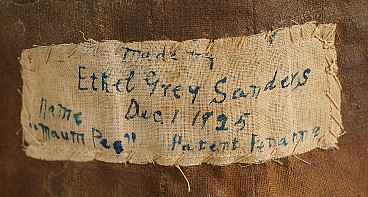 made by
Ethel Grey Sanders
Dec. 1 1925
Name
"Maum Peg" Patent